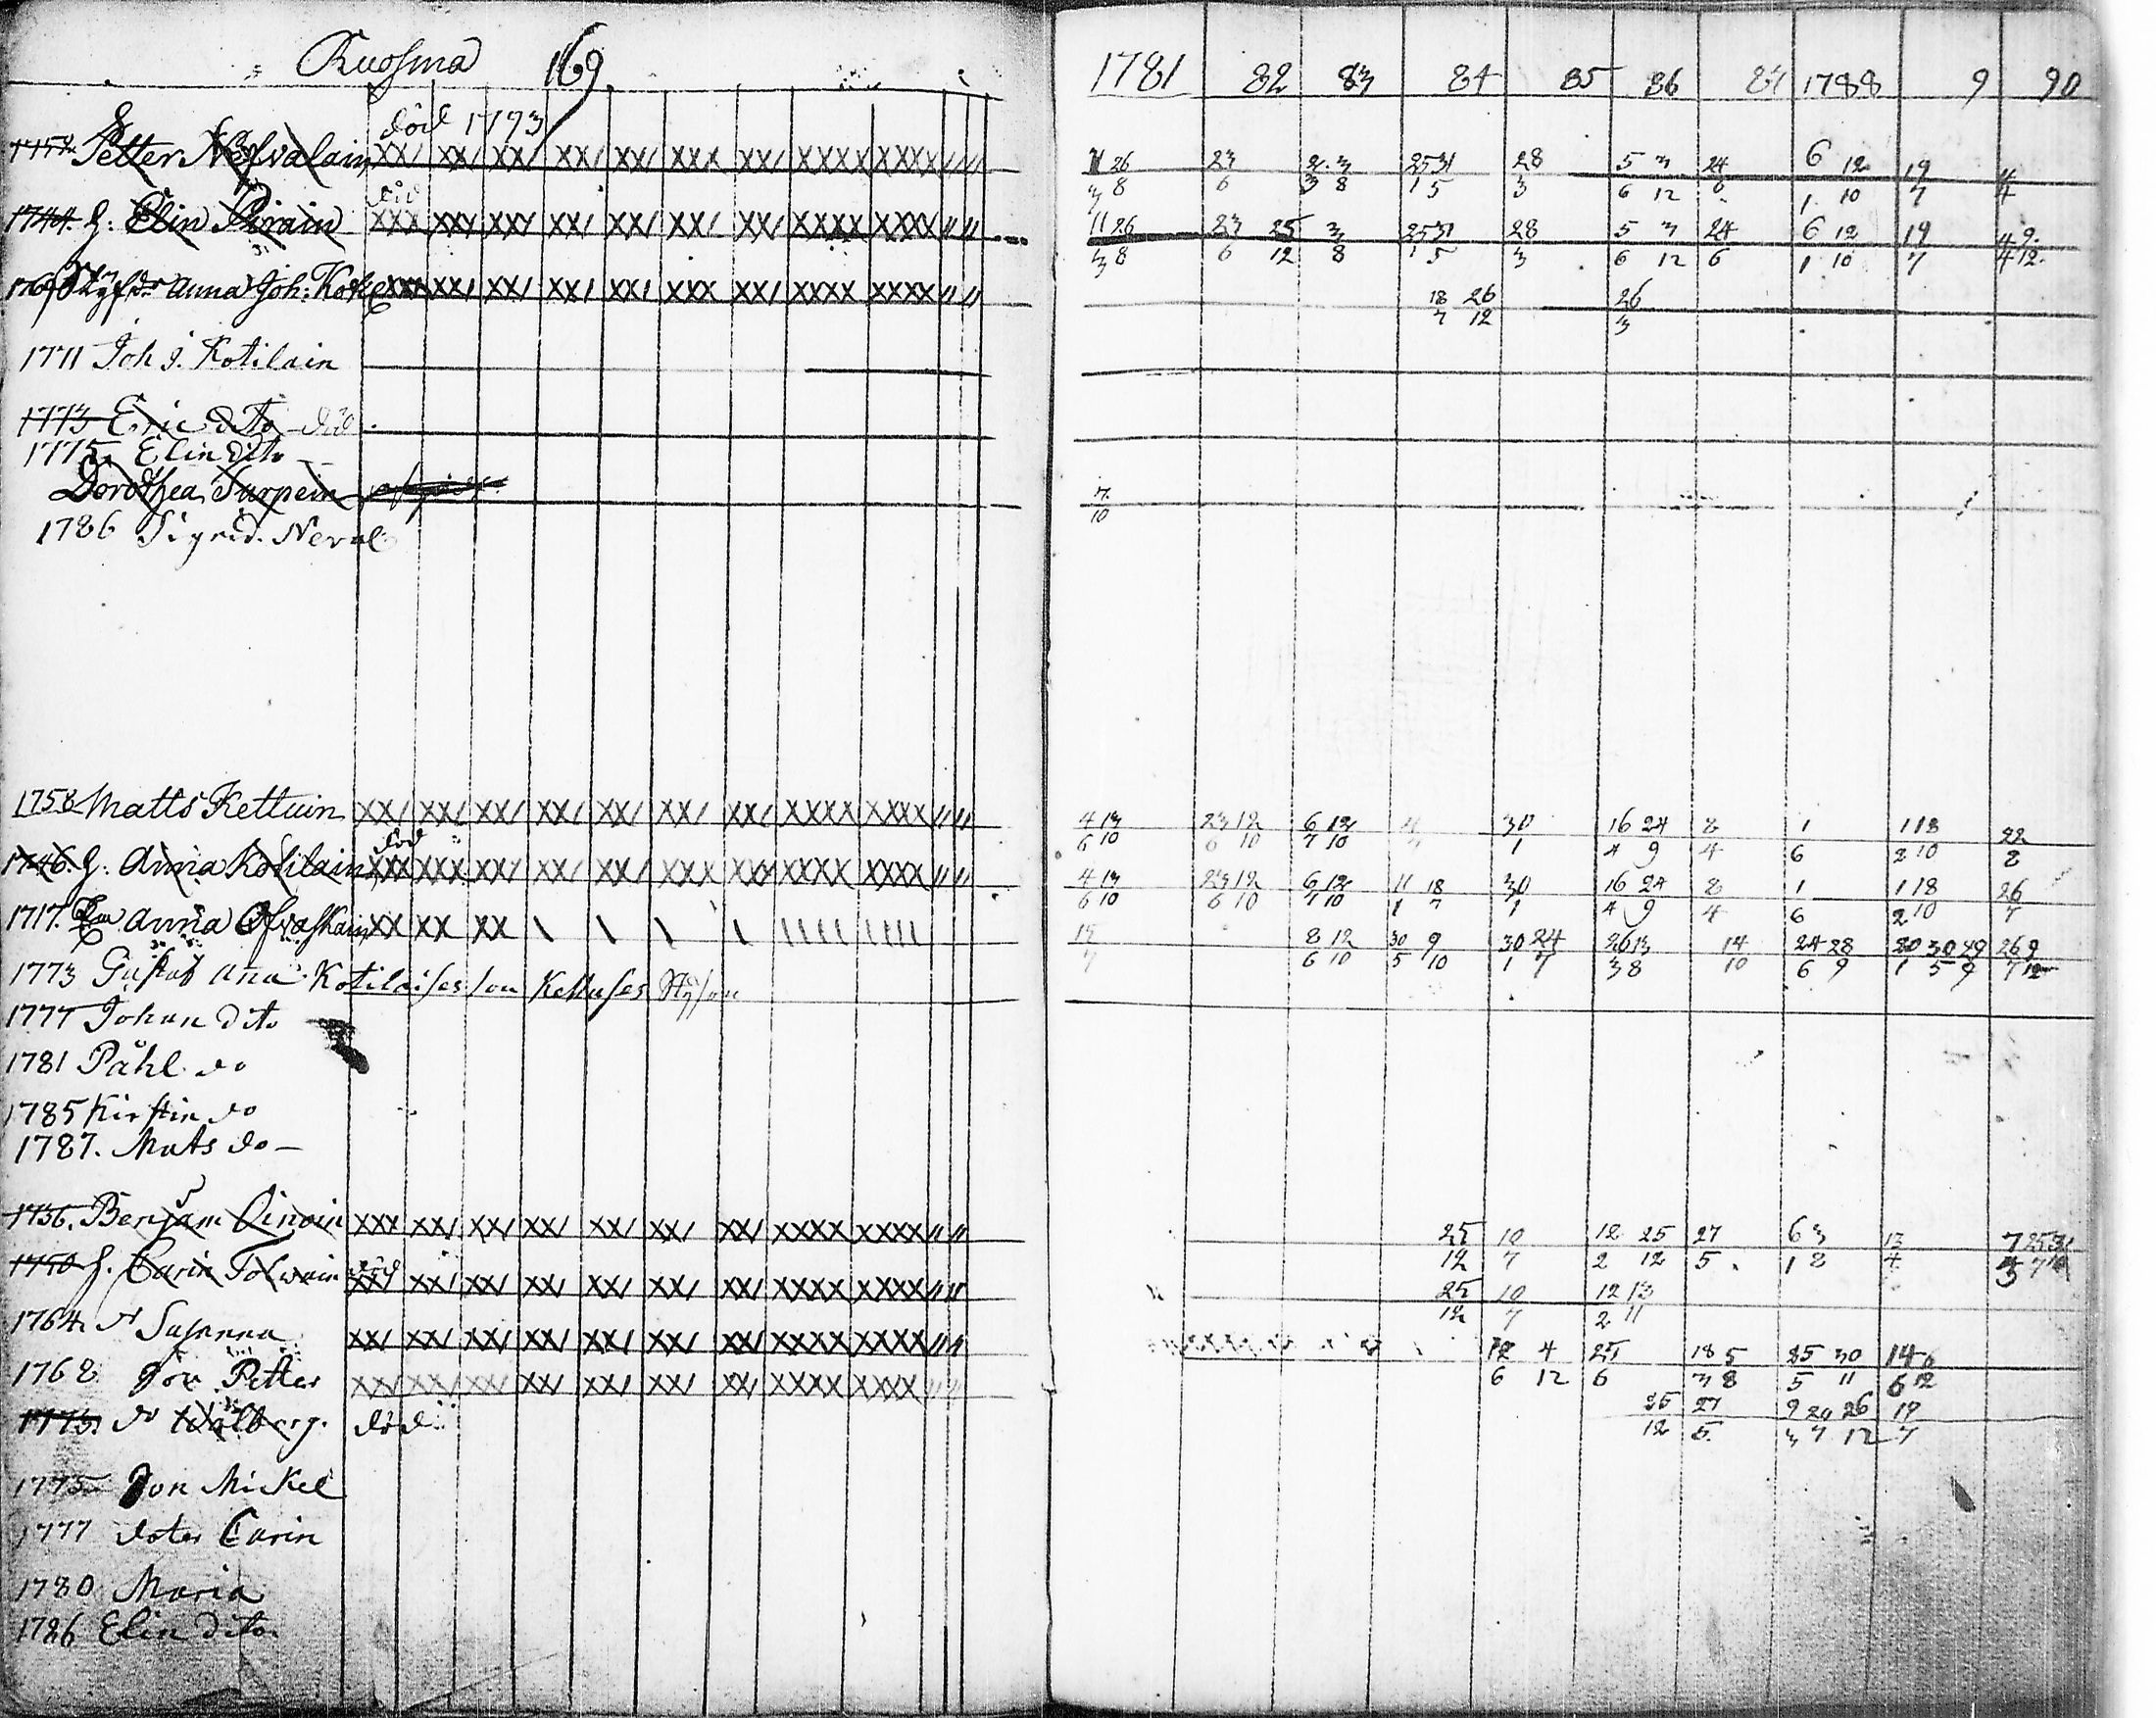 Kuosma 169.
död 1773
Petter Nefvalain XX/ XX/ XX/ XX/ XX/ XXX XX/ XXXX XXXX
död
1744. H. Elin Pirain XXX XX/ XX/ XX/ XX/ XX/ XX/ XXXX XXXX
Anna Joh: XX/ XX/ XX/ XX/ XXX XX/ XXXX XXXX
1771 Joh J. Kotilain
1773 Eric dito död
1775. Elin dito
Dorothea Turpein
1786 Sigrid. Neval
1758 Matts Kettuin XX/ XX/ XX/ XX/ XX/ XX/ XX/ XXXX XXXX
död
1746. H. Anna Kotilain XXX XXX XX/ XX/ XX/ XXX XXX XXXX XXXX
1717. Anna XX XX XX \ \ \ \ \\\\ \\\\
1773 Gustaf Kotilaises son Kettuses
1777 Johan dito
1781 Påhl do
1785 Kirstin do
1787. Mats do
1736. Benjam XXX XX/ XX/ XX/ XX/ XX/ XX/ XXXX XXXX
1750 H. Carin Tolvain död XX/ XX/ XX/ XX/ XX/ XX/ XX/ XXXX XXXX
1764 Susanna XX/ XX/ XX/ XX/ XX/ XX/ XX/ XXXX XXXX
1768 son Petter XX/ XX/ XX/ XX/ XX/ XX/ XX/ XXXX XXXX
1773. do Walberg. död
1775 son Mickel
1777 doter Carin
1780 Maria
1786 Elin dito
1781 82 83 84 85 86 87 1788 9 90
26 23 2. 3 25 31 28 5 3 24 6 12 19
3 8 6 3 8 1 5 3 6 12 6 1 10 7 4
11 26 23 25 3 25 31 28 5 3 24 6 12 19 4 9.
3 8 6 12 8 1 5 3 6 12 6 1 10 7 4 12.
18 26 26
7 12 3
7
10
4 13 23 12 6 12 30 16 24 8 1 1 18 22
6 10 6 10 7 10 1 4 9 4 6 2 10 8
4 13 23 12 6 12 11 18 30 16 24 8 1 1 18 26
6 10 6 10 7 10 1 7 1 4 9 4 6 2 10 7
15 8 12 30 9 30 24 26 13 14 24 28 20 30 29 26 9
7 6 10 5 10 1 7 3 8 10 6 9 1 5 9 7 12
25 10 12 25 27 6 3 13
12 7 2 12 5 1 8 4
25 10 12 13
12 7 2 11
12 4 25 18 5 25 30 14 6
6 12 6 3 8 5 11 6 12
25 27 9 24 26 19
12 5 3 7 12 7